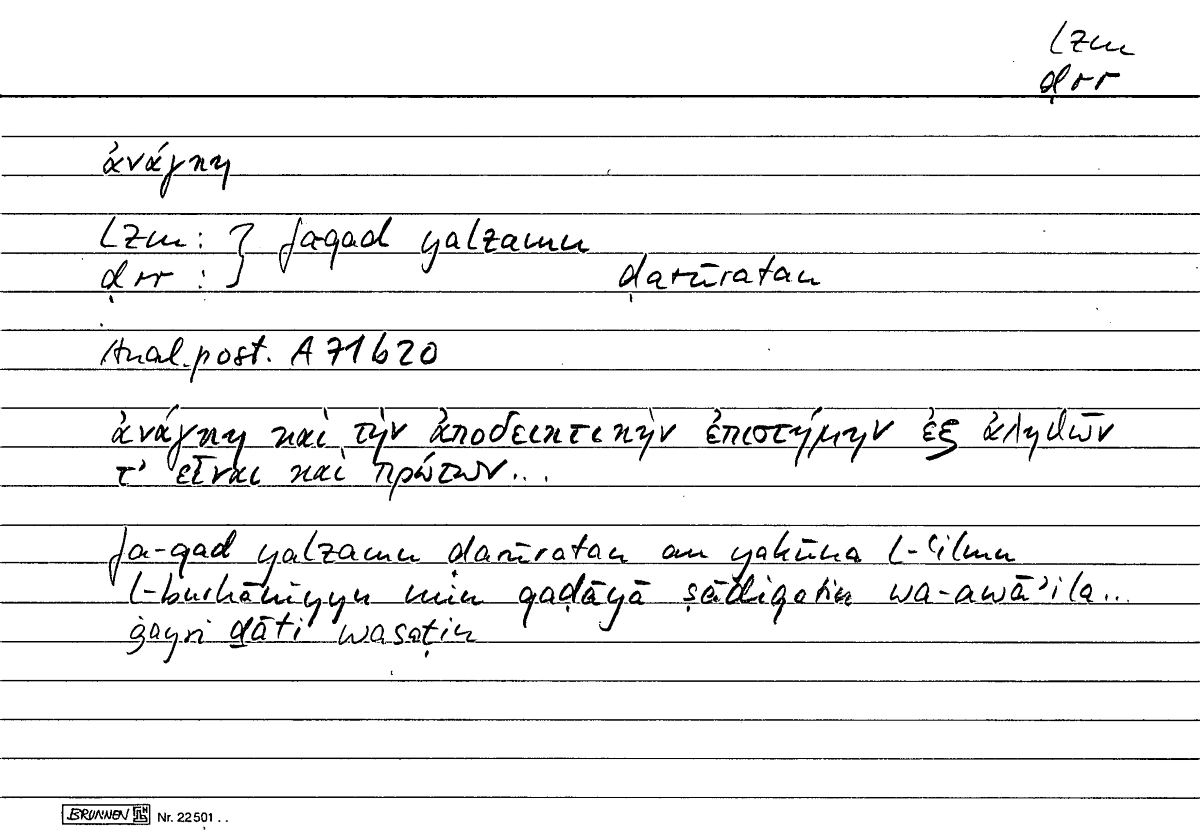 lzm
ḍrr
ἀνάγκη
lzm : } fa-qad yalzamu
ḍrr : } ḍarūratan
Anal. post. A 71 b 20
ἀνάγκη καὶ τὴν ἀποδεικτικὴν ἐπιστήμην ἐξ ἀληθῶν
τ' εἶναι καὶ πρώτων...
fa-qad yalzamu ḍarūratan an yakūna l-ʿilmu
l-burhāniyyu min qaḍāyā ṣādiqatin wa-awāʾila...
ġayri ḏāti wasaṭin
BRUNNEN Nr. 22501 ..